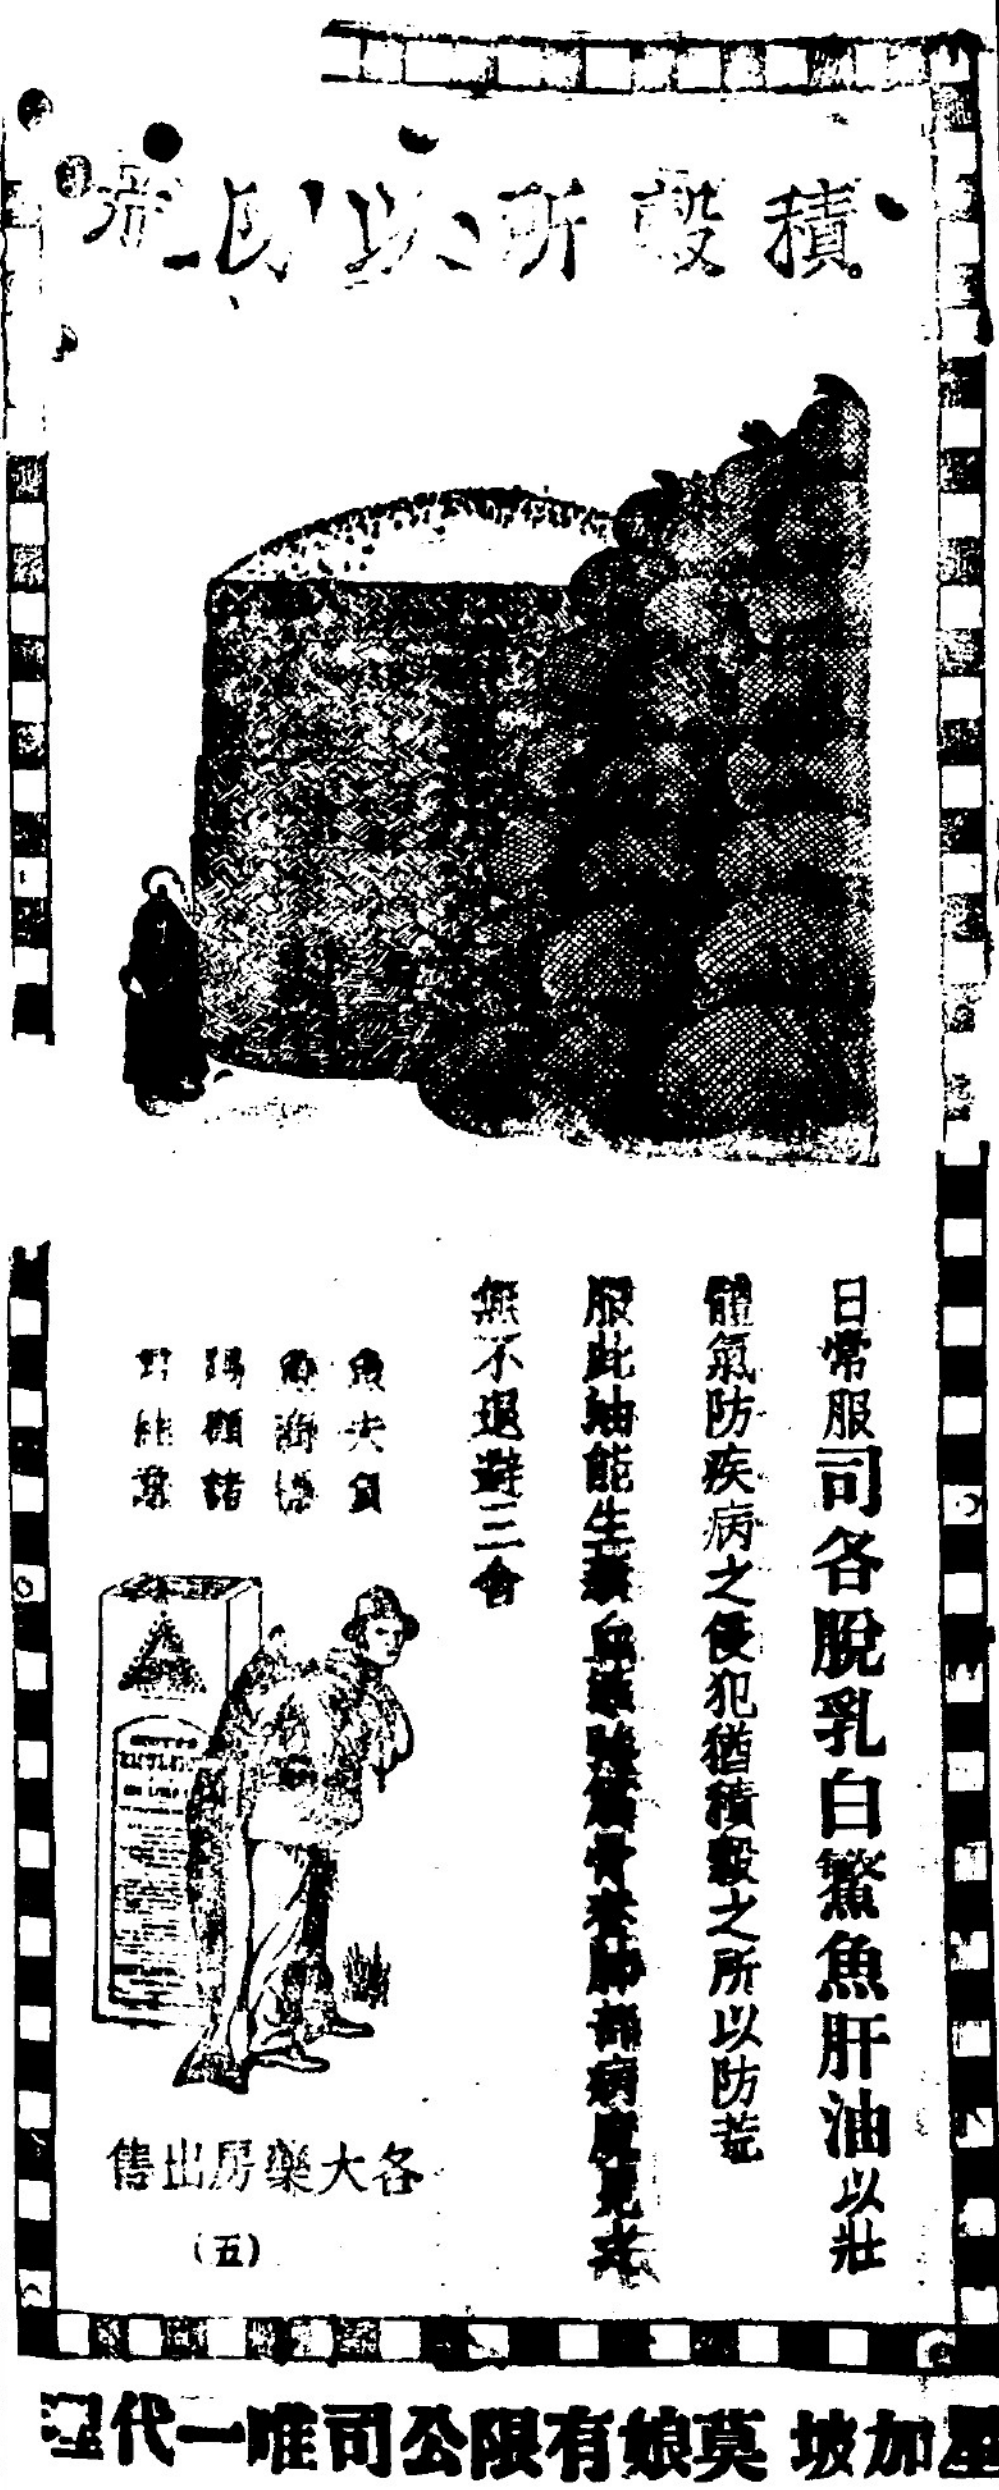 積穀所以
日常服司各脫乳白鰵魚肝油以壯
體氣防疾病之侵犯猶積穀之所以防荒
服此油能生血筋骨肺部病魔見
無不退避三舍
魚夫負
賜顧諸
各大藥房出售
（五）
星加坡 莫娘有限公司唯一代理